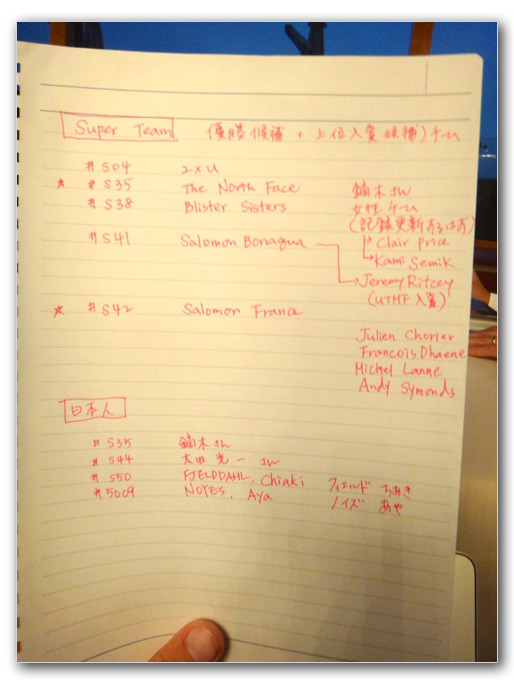 Super Team 優勝候補 + 上位入賞候補)チーム
#S04 2XU
★ #S35 The North Face 鏑木さん
#S38 Blister Sisters 女性チーム
(記録更新するはず)
Clair Price
Kami Semik
#S41 Salomon Bonaqua
Jeremy Ritcey
(UTMF入賞)
★ #S42 Salomon France
Julien Chorier
Francois Dhaene
Michel Lanne
Andy Symonds
日本人
#S35 鏑木さん
#S44 大田光一さん
#S50 FJELDDAHL, Chiaki フィエルド ちあき
#5009 NOYES, Aya ノイズ あや